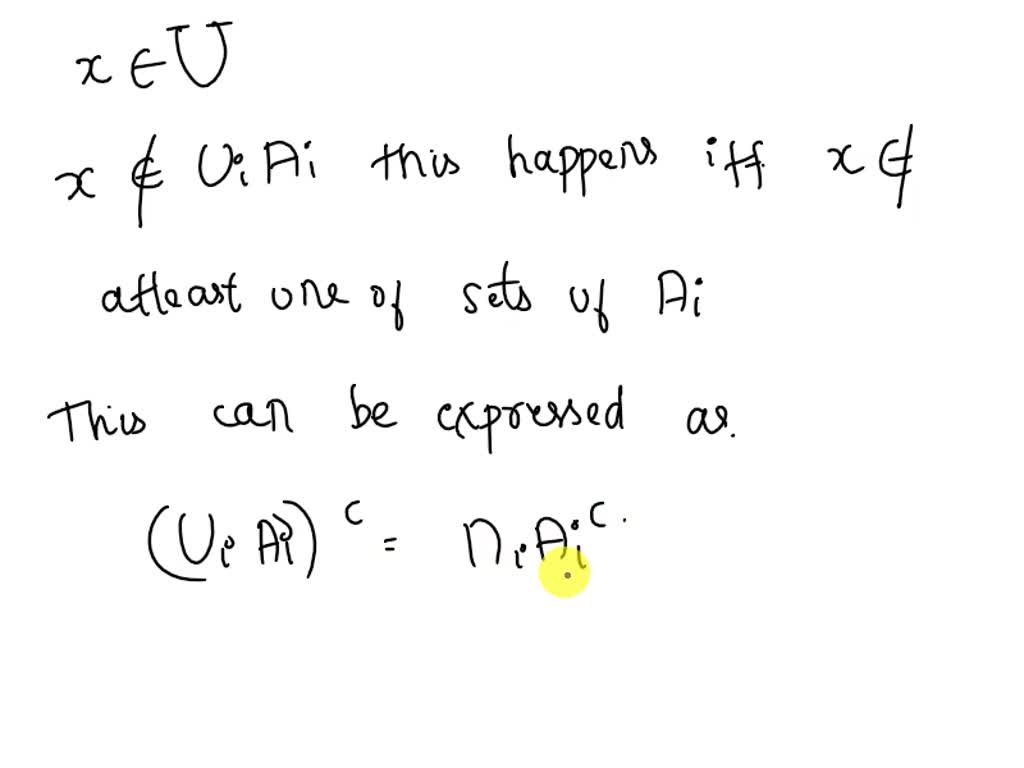 x ∈ U
x ∉ ∪i Ai this happens iff x ∉
atleast one of sets of Ai
This can be expressed as.
(∪i Ai)^c = ∩i Ai^c.